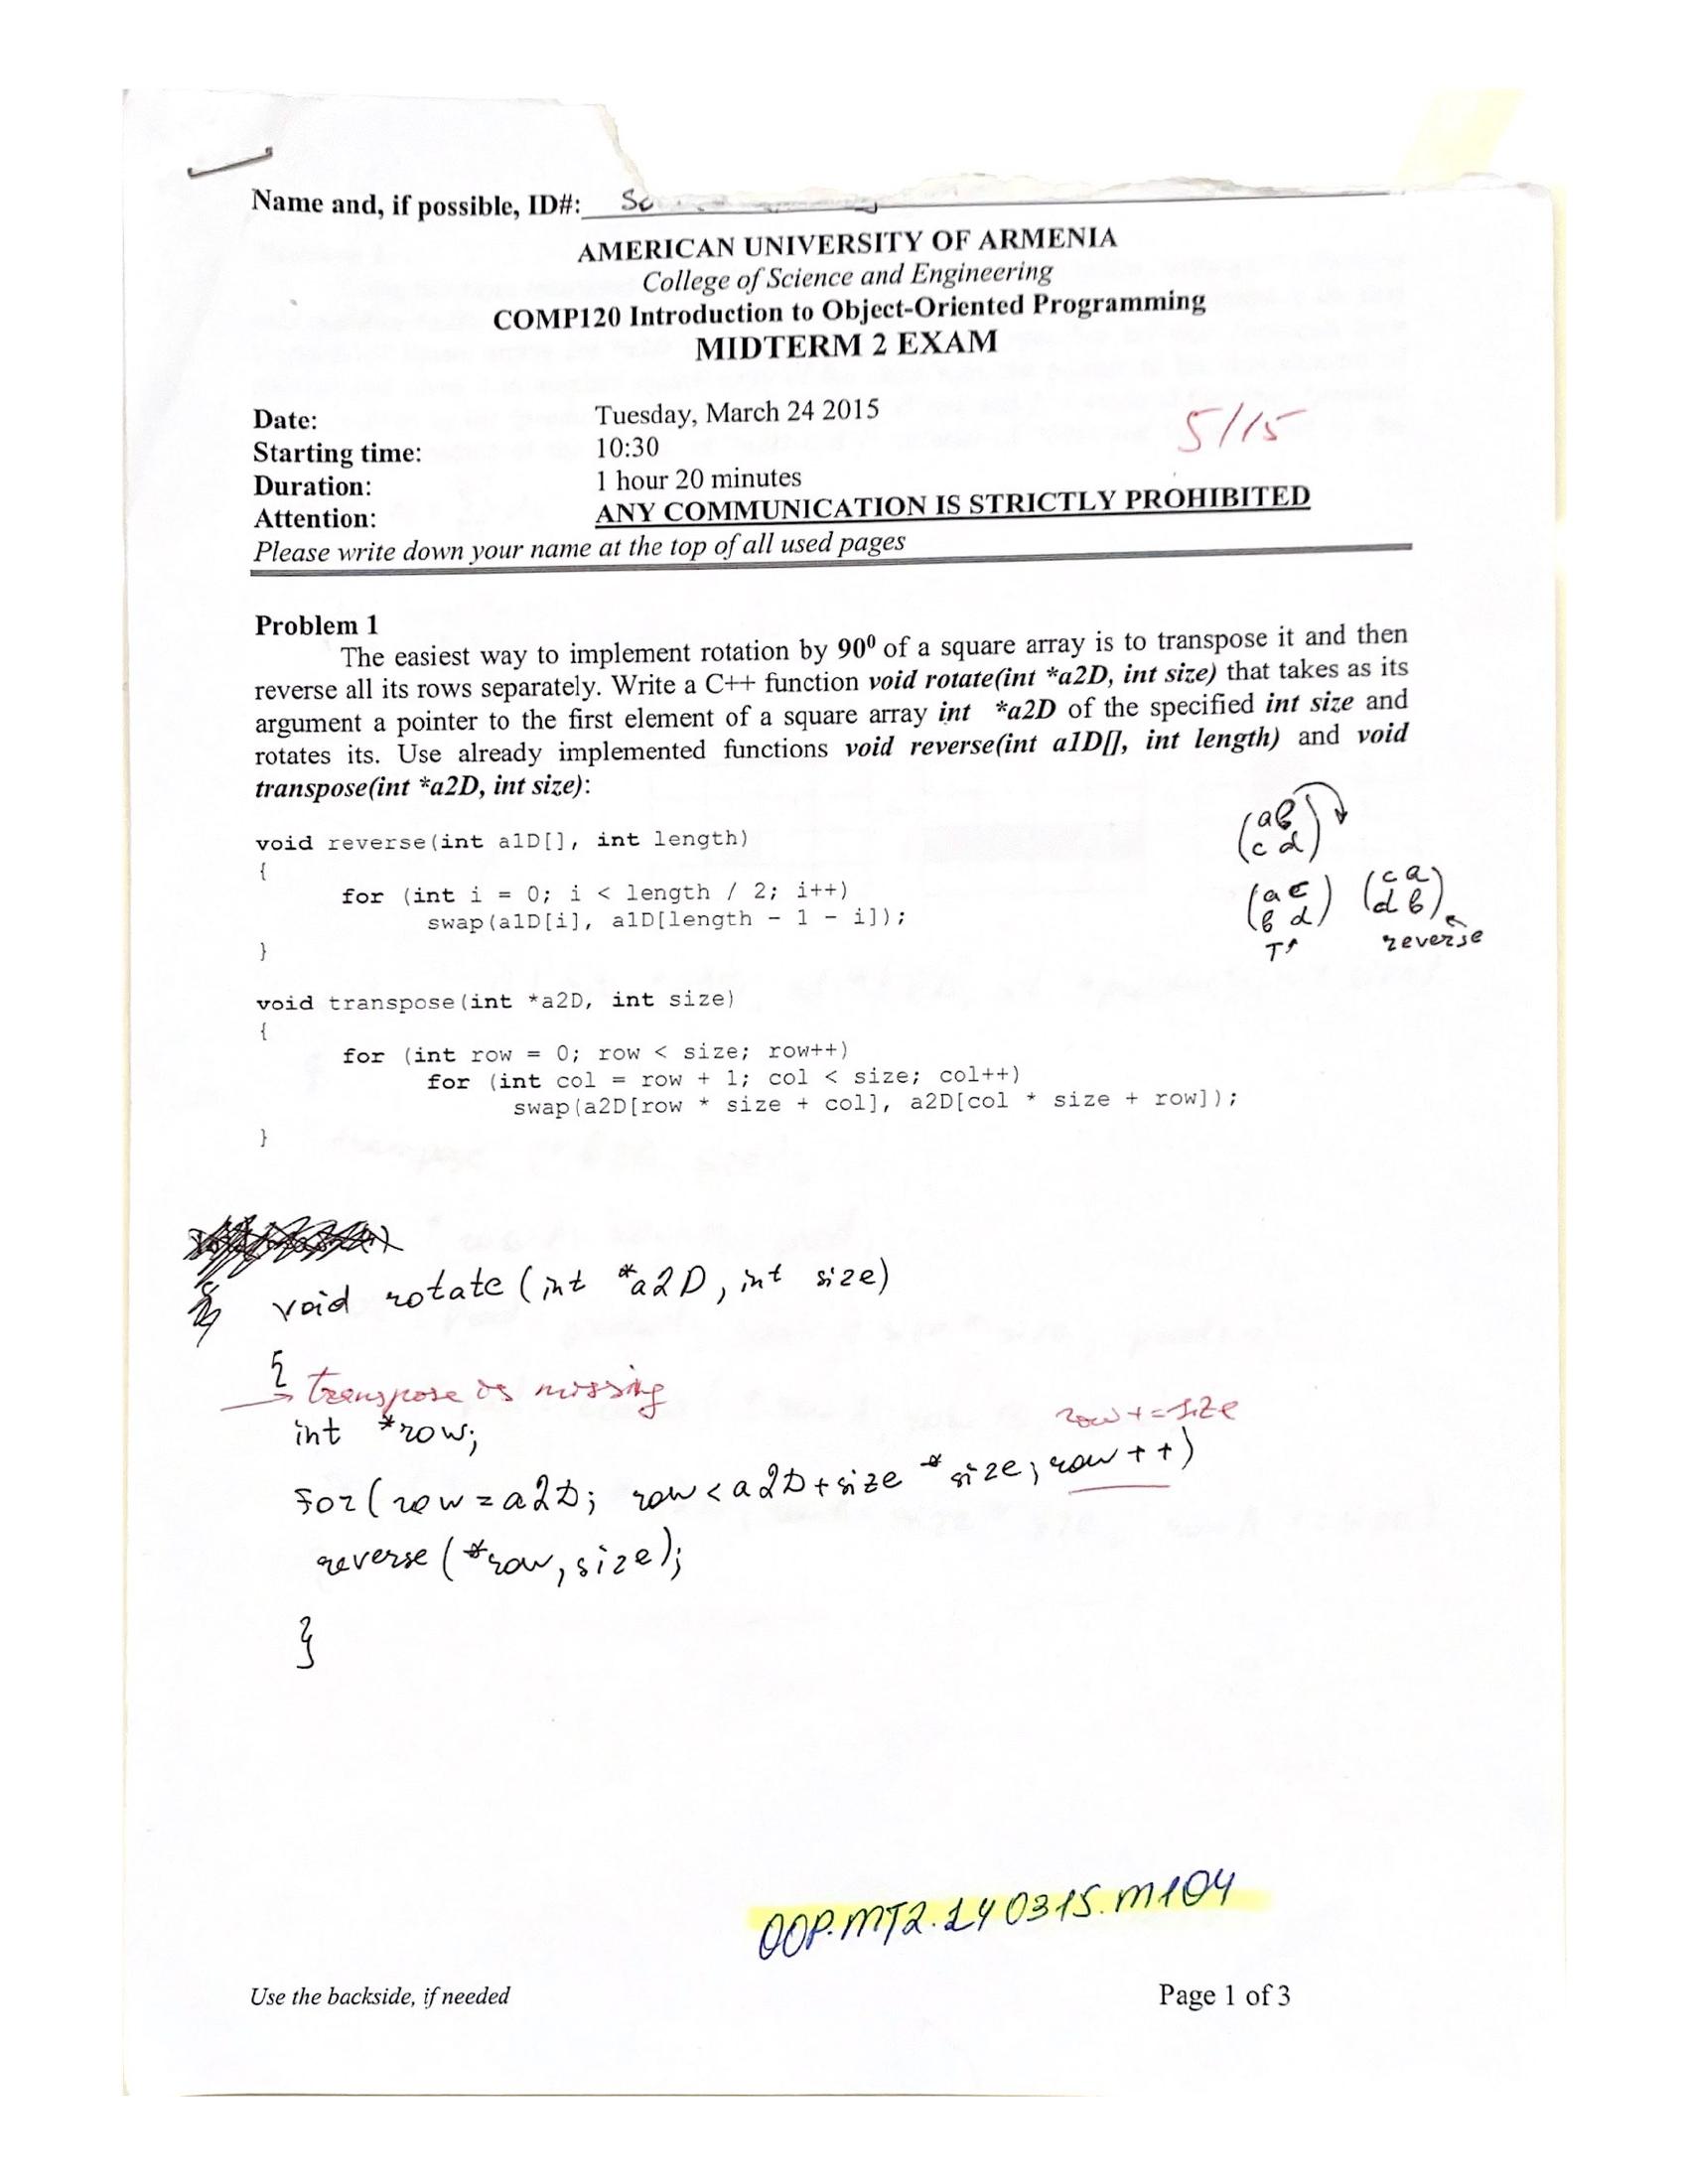 Name and, if possible, ID#:
AMERICAN UNIVERSITY OF ARMENIA
College of Science and Engineering
COMP120 Introduction to Object-Oriented Programming
MIDTERM 2 EXAM
Date: Tuesday, March 24 2015
5/15
Starting time: 10:30
Duration: 1 hour 20 minutes
Attention: ANY COMMUNICATION IS STRICTLY PROHIBITED
Please write down your name at the top of all used pages
Problem 1
The easiest way to implement rotation by 90⁰ of a square array is to transpose it and then
reverse all its rows separately. Write a C++ function void rotate(int *a2D, int size) that takes as its
argument a pointer to the first element of a square array int *a2D of the specified int size and
rotates its. Use already implemented functions void reverse(int a1D[], int length) and void
transpose(int *a2D, int size):
void reverse(int a1D[], int length)
{
for (int i = 0; i < length / 2; i++)
swap(a1D[i], a1D[length - 1 - i]);
}
(a b
c d)
(a c
b d) (c a
d b)
T reverse
void transpose(int *a2D, int size)
{
for (int row = 0; row < size; row++)
for (int col = row + 1; col < size; col++)
swap(a2D[row * size + col], a2D[col * size + row]);
}
void rotate (int *a2D, int size)
{
→ transpose is missing
int *row;
row += size
for(row = a2D; row < a2D + size * size; row++)
reverse (*row, size);
}
OOP.MT2.240315.M104
Use the backside, if needed
Page 1 of 3